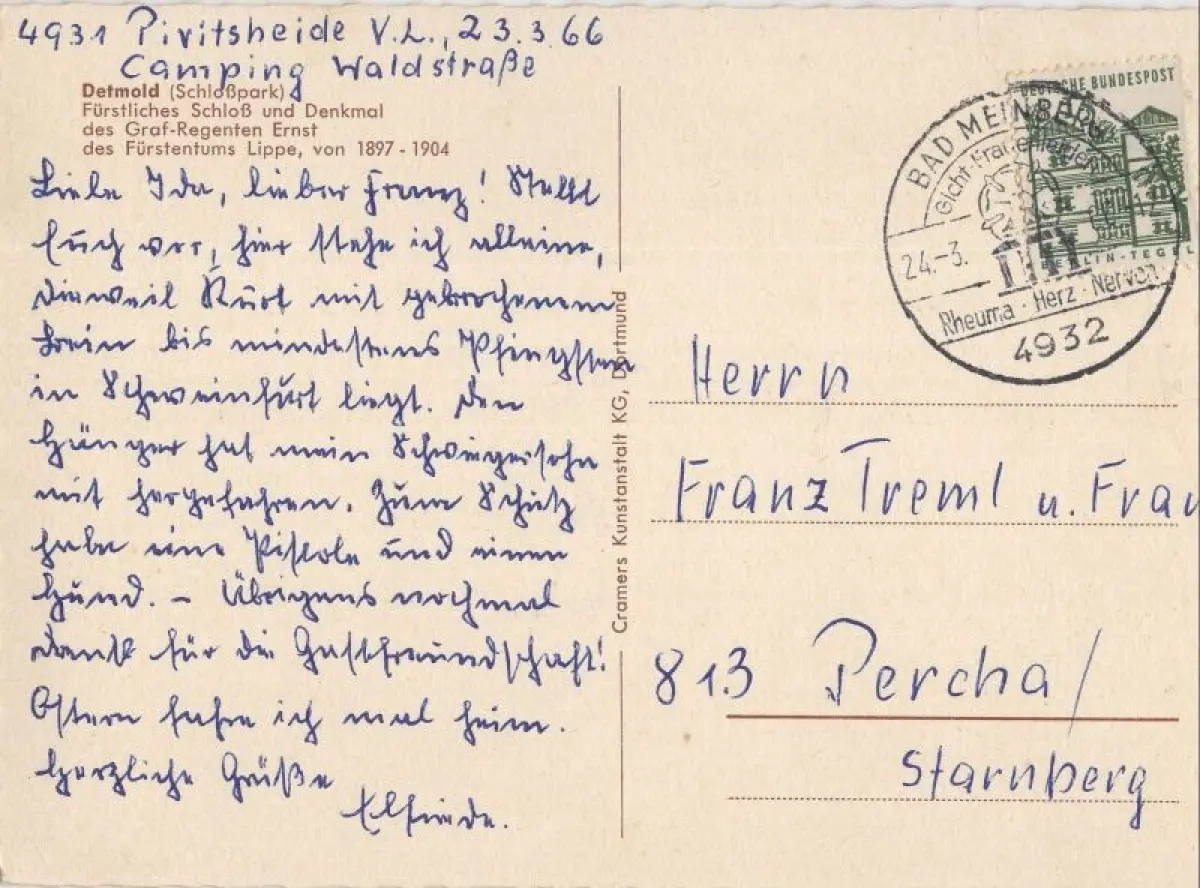 4931 Pivitsheide V.L., 23.3.66
Camping Waldstraße
Detmold (Schloßpark)
Fürstliches Schloß und Denkmal
des Graf-Regenten Ernst
des Fürstentums Lippe, von 1897 - 1904
Liebe Ida, lieber Franz! Stellt
Euch vor, hier stehe ich alleine,
dieweil Kurt mit gebrochenem
Bein bis mindestens Pfingsten
in Schweinfurt liegt. Den
Hänger hat mein Schwiegersohn
mit hergefahren. Zum Schutz
habe eine Pistole und einen
Hund. – Übrigens nochmal
Dank für die Gastfreundschaft!
Ostern fahre ich mal heim.
Herzliche Grüße
Elfriede.
Cramers Kunstanstalt KG, Dortmund
DEUTSCHE BUNDESPOST
BERLIN-TEGEL
BAD MEINBERG
Gicht · Frauenleiden
24.-3.
Rheuma · Herz · Nerven
4932
Herrn
Franz Treml u. Frau
813 Percha/
Starnberg